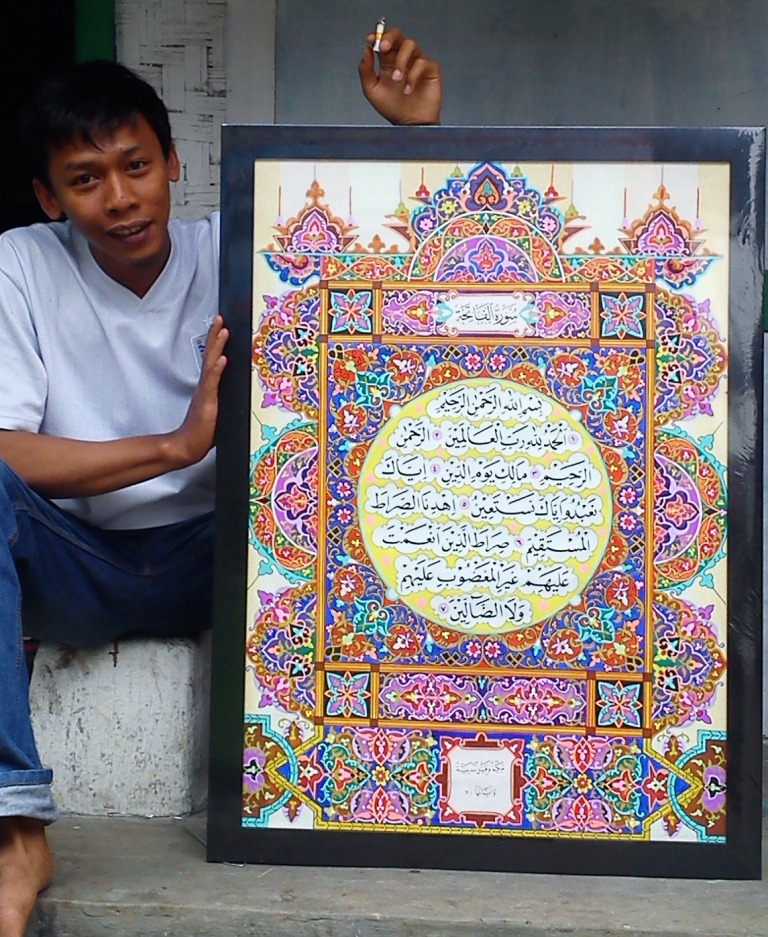 سُوْرَةُ الْفَاتِحَةِ
بِسْمِ اللهِ الرَّحْمٰنِ الرَّحِيْمِ
١ اَلْحَمْدُ لِلّٰهِ رَبِّ الْعَالَمِيْنَ ٢ الرَّحْمٰنِ
الرَّحِيْمِ ٣ مَالِكِ يَوْمِ الدِّيْنِ ٤ اِيَّاكَ
نَعْبُدُ وَاِيَّاكَ نَسْتَعِيْنُ ٥ اِهْدِنَا الصِّرَاطَ
الْمُسْتَقِيْمَ ٦ صِرَاطَ الَّذِيْنَ اَنْعَمْتَ
عَلَيْهِمْ غَيْرِ الْمَغْضُوْبِ عَلَيْهِمْ
وَلَا الضَّالِّيْنَ ٧